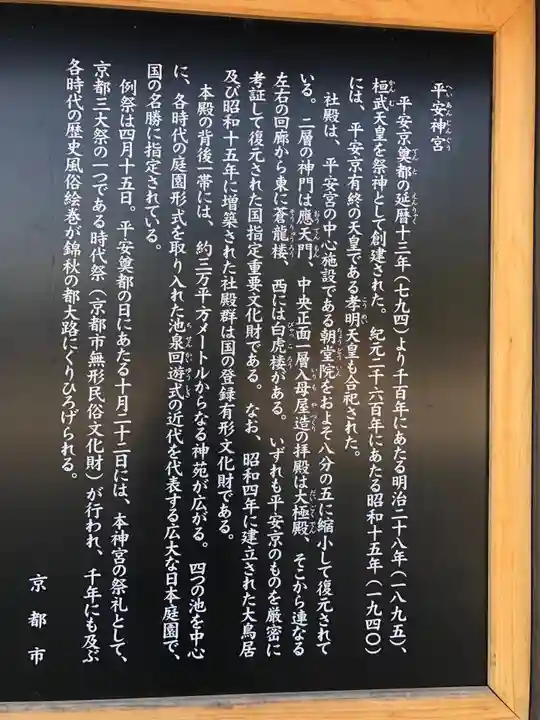 平安神宮
平安京奠都の延暦十三年（七九四）より千百年にあたる明治二十八年（一八九五）、
桓武天皇を祭神として創建された。紀元二千六百年にあたる昭和十五年（一九四〇）
には、平安京有終の天皇である孝明天皇も合祀された。
社殿は、平安宮の中心施設である朝堂院をおよそ八分の五に縮小して復元されて
いる。二層の神門は應天門、中央正面一層入母屋造の拝殿は大極殿、そこから連なる
左右の回廊から東に蒼龍楼、西には白虎楼がある。いずれも平安京のものを厳密に
考証して復元された国指定重要文化財である。なお、昭和四年に建立された大鳥居
及び昭和十五年に増築された社殿群は国の登録有形文化財である。
本殿の背後一帯には、約三万平方メートルからなる神苑が広がる。四つの池を中心
に、各時代の庭園形式を取り入れた池泉回遊式の近代を代表する広大な日本庭園で、
国の名勝に指定されている。
例祭は四月十五日。平安奠都の日にあたる十月二十二日には、本神宮の祭礼として、
京都三大祭の一つである時代祭（京都市無形民俗文化財）が行われ、千年にも及ぶ
各時代の歴史風俗絵巻が錦秋の都大路にくりひろげられる。
京都市